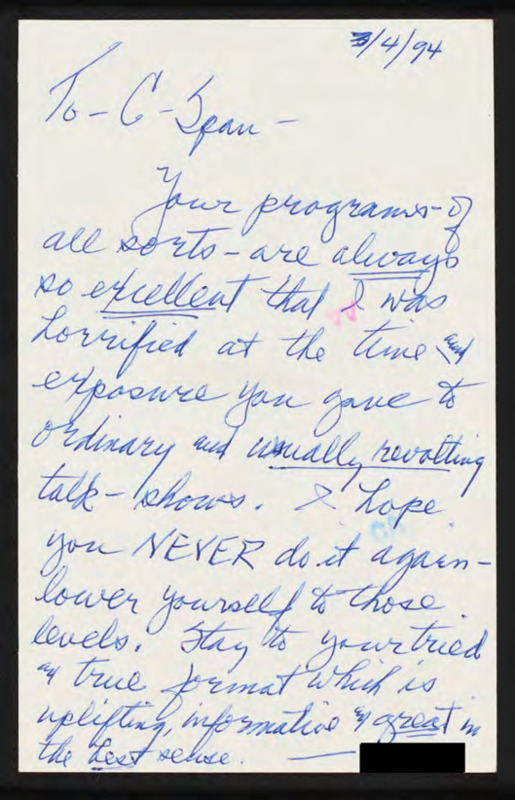 3/4/94
To - C-Span -
Your programs - of
all sorts - are always
so excellent that I was
horrified at the time and
exposure you gave to
ordinary and usually revolting
talk-shows. I hope
you NEVER do it again -
lower yourself to those
levels. Stay to your tried
& true format which is
uplifting, informative & great in
the best sense. —